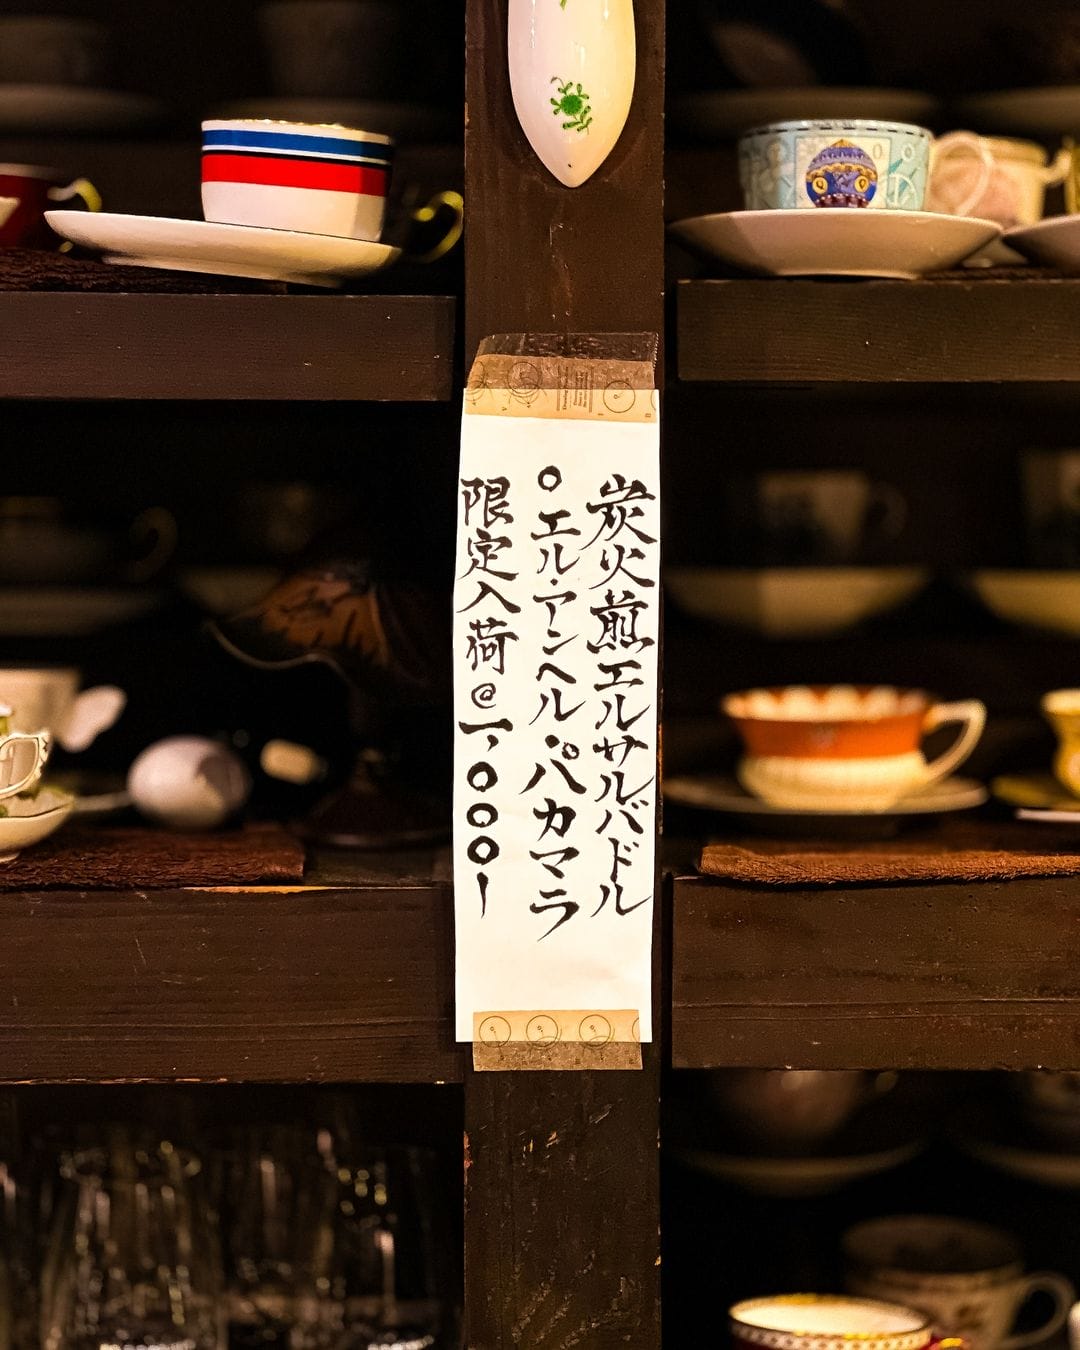 炭火煎エルサルバドル
○エル・アンヘル・パカマラ
限定入荷@一,000ー